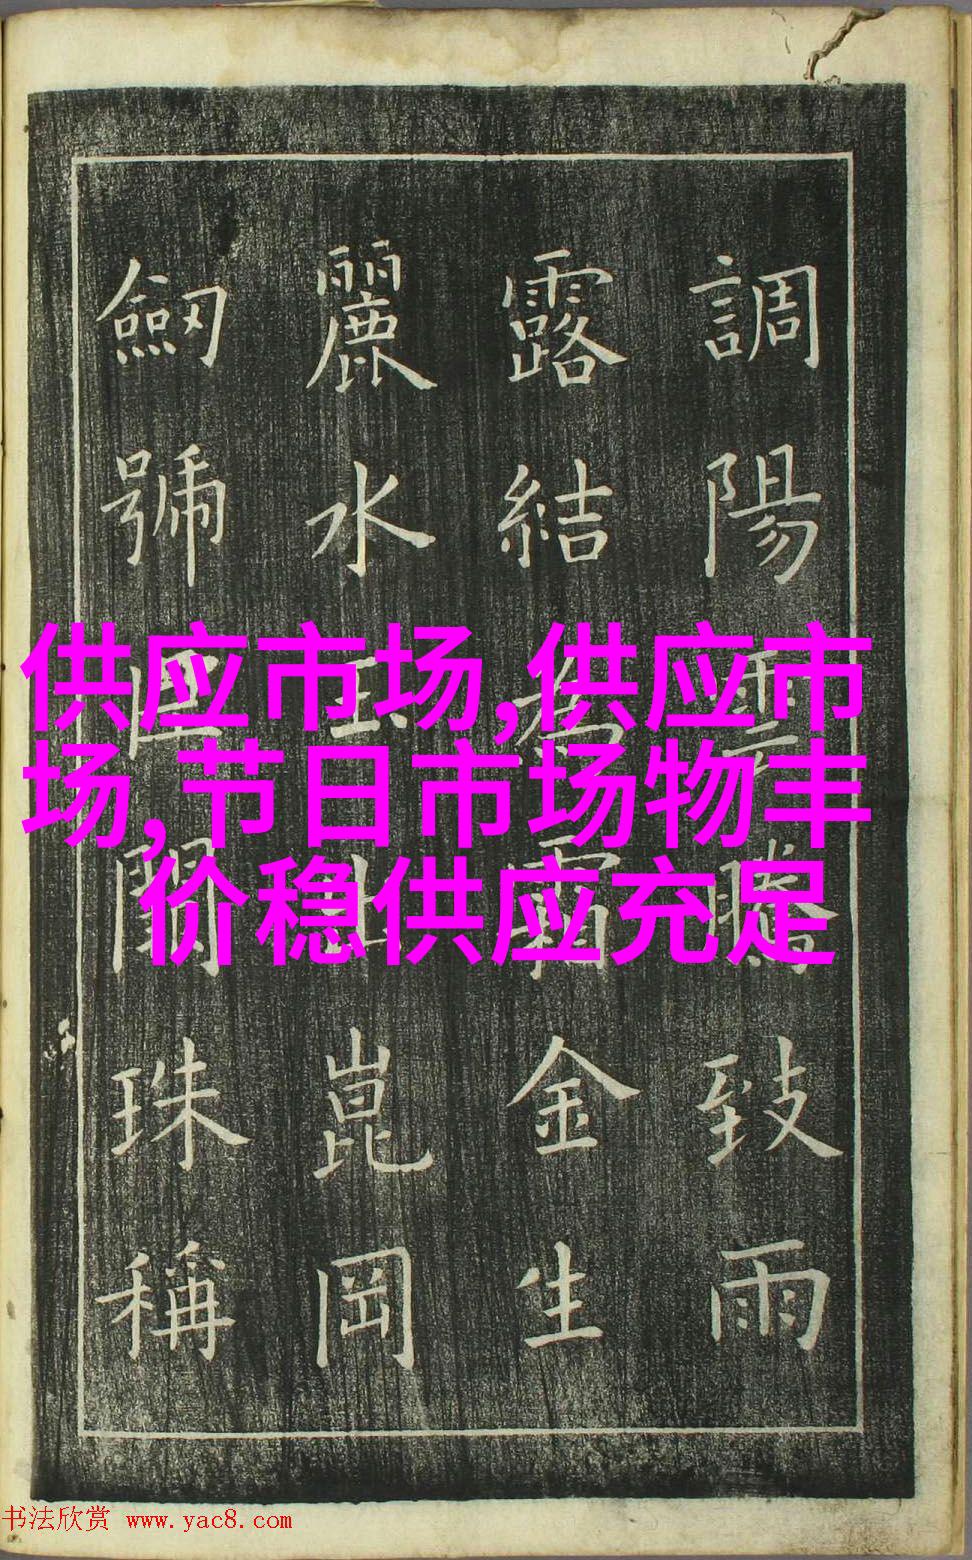 調陽雲騰致雨
露結為霜金生
麗水玉出崑岡
劒號巨闕珠稱
供应市场,供应市
场,节日市场物丰
价稳供应充足
书法欣赏 www.yac8.com